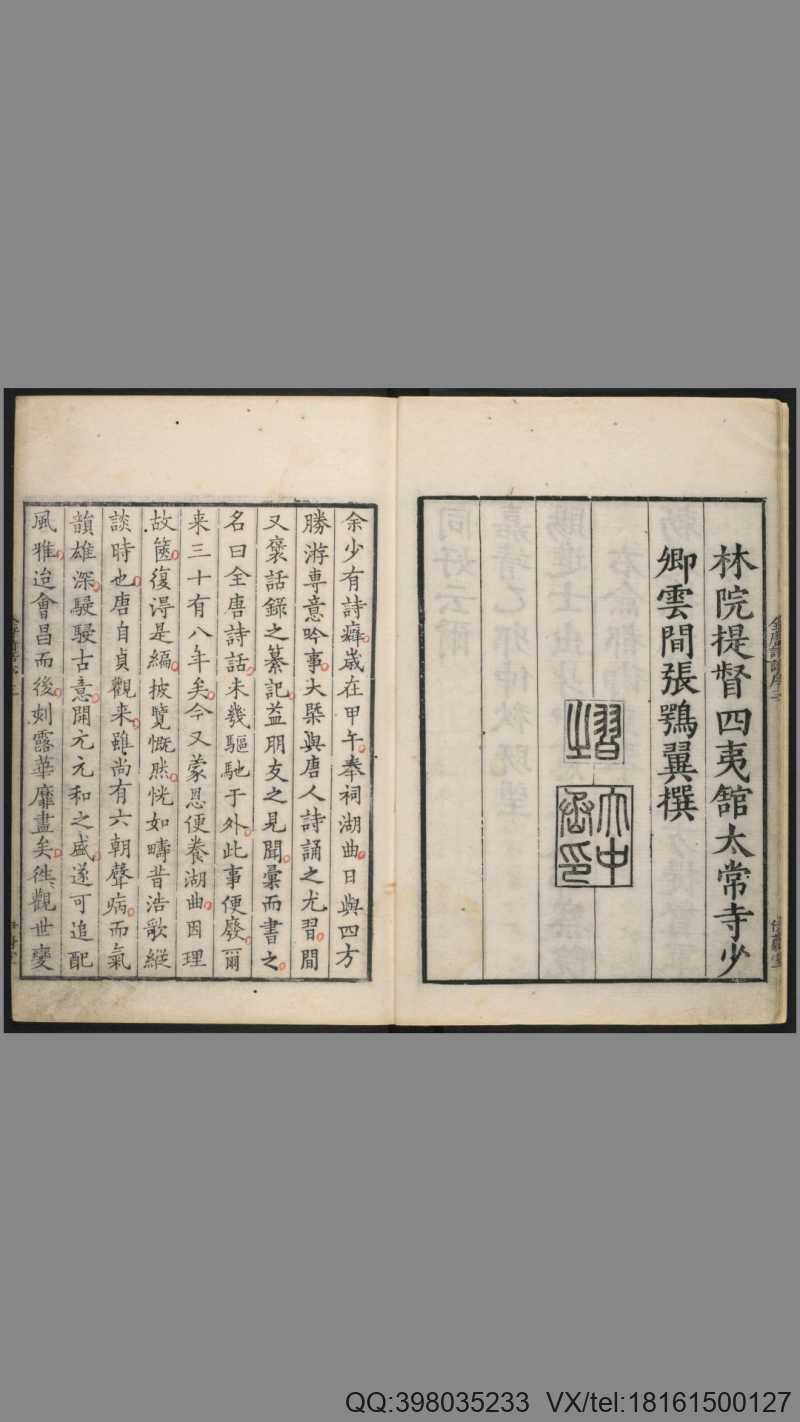 林院提督四夷舘太常寺少
卿雲間張鶚翼撰
余少有詩癖歲在甲午奉祠湖曲日與四方
勝游専意吟事大槩與唐人詩誦之尤習間
又褎話錄之纂記益朋友之見聞彙而書之
名曰全唐詩話未幾驅馳于外此事便廢爾
来三十有八年矣今又蒙恩便養湖曲因理
故篋復淂是編披覽慨然恍如疇昔浩歌縱
談時也唐自貞觀来雖尚有六朝聲病而氣
韻雄深駸駸古意開元元和之盛遂可追配
風雅迨會昌而後刻露華靡盡矣徃徃觀世變
QQ:398035233 VX/tel:18161500127